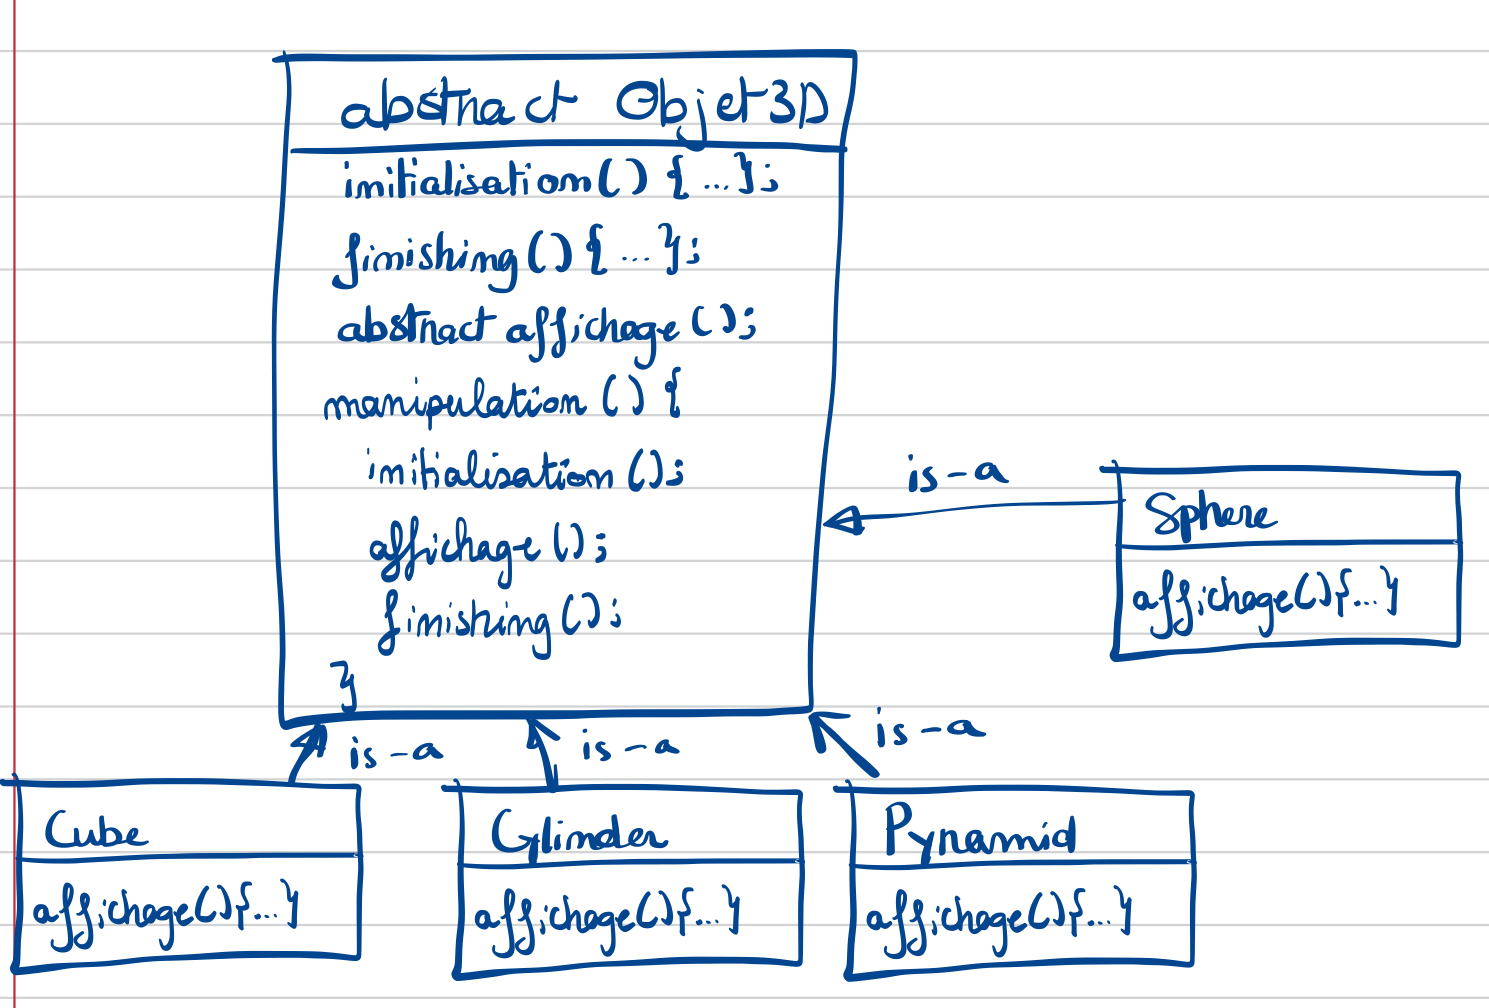 abstract Objet3D
initialisation() {...};
finishing() {...};
abstract affichage();
manipulation() {
initialisation();
affichage();
finishing();
}
is-a
Sphere
affichage(){...}
is-a
is-a
is-a
Cube
affichage(){...}
Cylinder
affichage(){...}
Pyramid
affichage(){...}